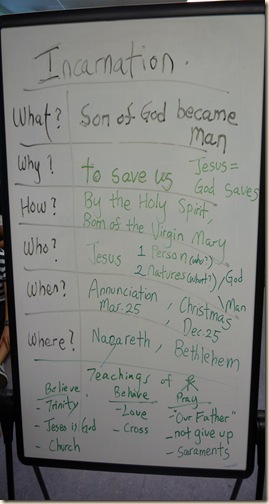 Incarnation.
What? Son of God became
Man
Why? to save us Jesus =
God saves
How? By the Holy Spirit,
Born of the Virgin Mary
Who? Jesus 1 Person (who?)
2 Natures (what?) / God
\ Man
When? Annunciation , Christmas
Mar. 25 Dec. 25
Where? Nazareth , Bethlehem
Teachings of
Believe Behave Pray
- Trinity - Love - "Our Father"
- Jesus is God - Cross - not give up
- Church - Sacraments